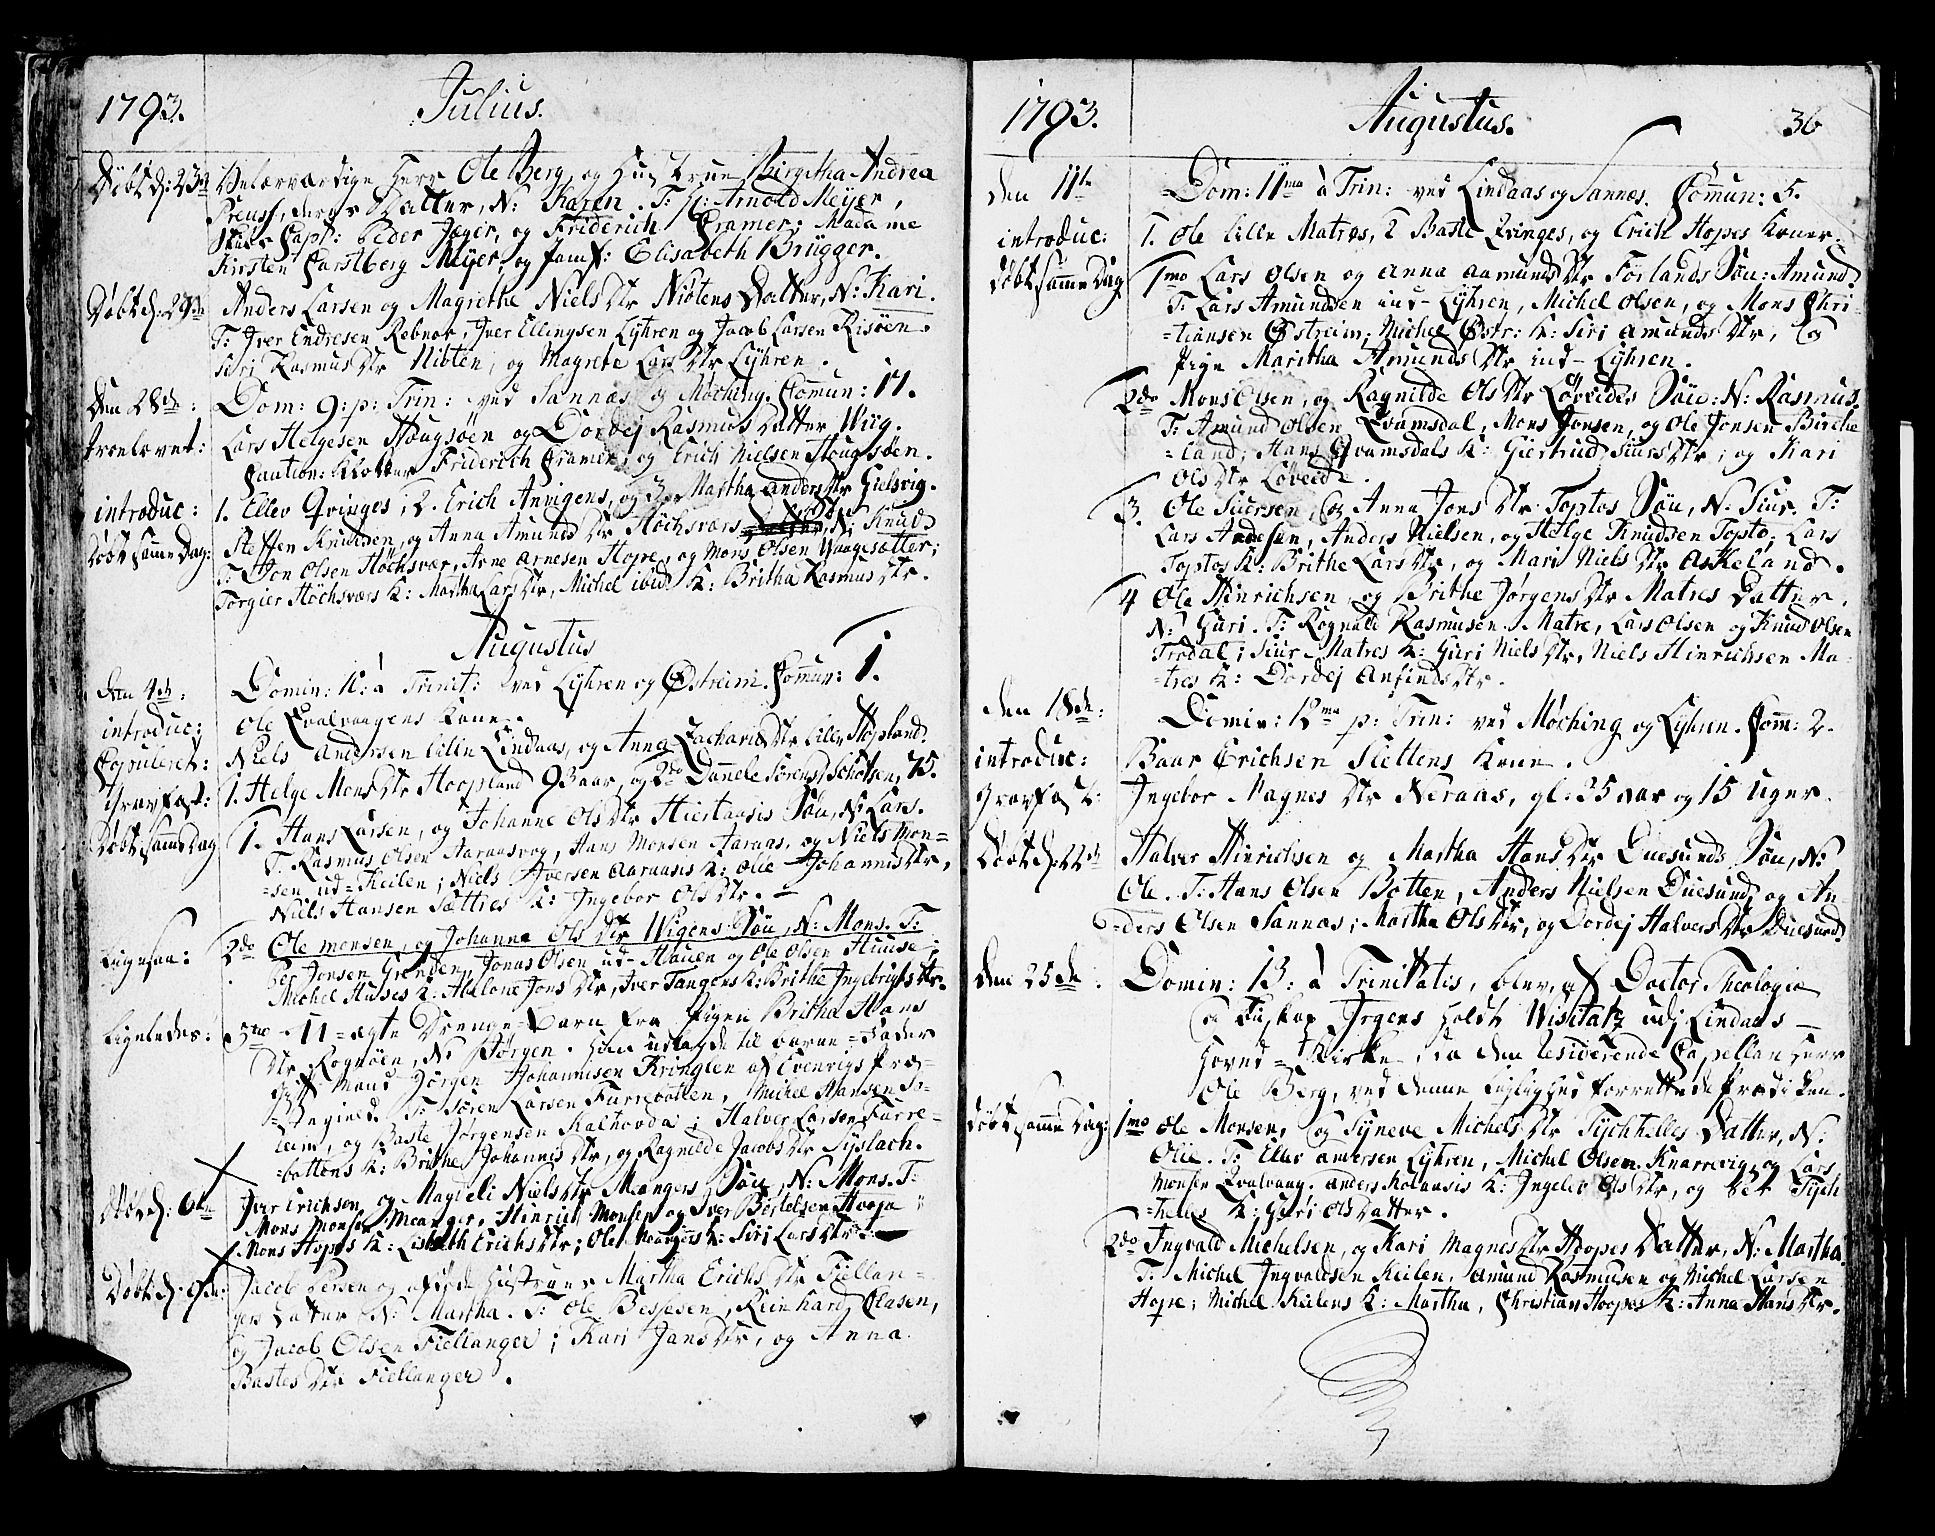 1793. Julius.
Døbt d: 23de Velærværdige Herr Ole Berg, og Hustrue Birgitha Andrea
Preus, deres Datter, N: Karen. T: Hr: Arnold Meÿer,
Capt: Peder Jæger, og Friderich Cramer; Madame
Kirsten Carstberg Meÿer, og Jomf: Elisabeth Brügger.
Døbt d: Anders Larsen og Magrethe Niels Dtr Niøtens Datter, N: Kari.
T: Iver Endresen Rebnor, Iver Ellingsen Lÿhren og Jacob Larsen Risøen.
Siri Rasmus Dtr Niøten, og Magrete Lars Dtr Lÿhren.
Den 28de: Dom: 9: p: Trin: ved Sannæs og Møching. Comun: 17.
Troelovet: Lars Helgesen Hougsøen og Dordej Rasmus Datter Wiig.
Caution: Klokker Friderich Cramer og Erich Nielsen Hougsøen.
introduc: 1. Ellev Qvinges; 2. Erich Annigens, og Martha Anders Dtr Gielsvig.
Døbt samme Dag: Steffen Knudsen, og Anna Amunds Dtr Høchsværs Søn, N: Knud
T: Jon Olsen Høchsvær, Arne Arnesen Hope, og Mons Olsen Waagesætter;
Torgier Høchsværs K: Martha Lars Dtr, Michel ibid: K: Britha Rasmus Dtr.
Augustus
den 4de: Domin: 10: à Trinit: ved Lÿhren og Østreim. Comun: 1.
introduc: Ole Qvalvaagens Kone.
Copuleret: Niels Andersen lille Lindaas, og Anna Zacharias Dtr lille Hopland.
Gravfæst: 1. Helge Mons Dtr Hoopland 93 aar, og 2do Dannele Sørens Schodsen, 75.
Døbt samme Dag 1. Hans Larsen, og Johanne Ols Dtr Hiertaasis Søn, N: Lars.
T: Rasmus Olsen Aaraasvog, Hans Monsen Aaraas, og Niels Mon=
=sen ud=Keilen; Niels Iversen Aaraasis K: Olie Johannis Dtr,
Niels Hansen Sættres K: Ingebor Ols Dtr.
Ligesaa: 2do Ole Monsen, og Johanna Ols Dtr Wigens Søn, N: Mons. T:
Per Jonsen Grenden, Jonas Olsen ud-Hauen og Ole Olsen Huuse;
Michel Huses K: Abelone Jons Dtr, Iver Tangens K: Brithe Ingebrigts Dtr.
Ligeledes: 3tio U=ægte Drenge=Barn fra Pigen Britha Hans
Dtr Rognøen, N: Jørgen. Hun udlagde til barne=Fader
Gift Mand Jørgen Johannisen Kringlen af Evenvigs Præ=
=stegield. T: Søren Larsen Furrebotten, Michel Hansen So=
leim, og Baste Jørgensen Kalhovda; Halver Larsen Furre=
=bottens K: Brithe Johannis Dtr, og Ragnilde Jacobs Dtr Sÿslach.
Iver Erichsen, og Magdeli Niels Dtr Mangers Søn, N: Mons. T:
Mons Monsen Meanger, Hinrich Monsen og Iver Bostelsen Hoope
Mons Hopes K: Lisbeth Erichs Dtr; Ole Maangers K: Siri Lars Dtr.
Døbt d: Jacob Persen og Hustrues Martha Erichs Dtr Fiellan=
gers Datter N: Martha. T: Ole Bessesen, Reinhard Olasen,
og Jacob Olsen Fiellanger; Kari Jans Dtr, og Anna
Bastes Dtr Fiellanger.
1793. Augustus. 36
den 11te Dom: 11ma à Trin: ved Lindaas og Sannæs. Comun: 5.
introduc: 1. Ole lille Matres, 2 Baste Qvinges, og Erich Hopes Koner.
Døbt samme Dag 1mo Lars Olsen og Anna Aamunds Dtr Førlands Søn: Amund.
T: Lars Amundsen ind-Lÿhren, Michel Olsen, og Mons Chri
=tiansen Østreim; Michel Østr: K: Siri Amunds Dtr, og
Pige Maritha Amunds Dtr ind-Lÿhren.
2do Mons Olsen, og Ragnilde Ols Dtr Løvedes Søn: N: Rasmus.
T: Amund Olsen Qvamsdal, Mons Jonsen, og Ole Jonsen Birche
=land; Hans Qvamsdals K: Giertrud Siurs Dtr; og Kari
Ols Dtr Løveide.
3. Ole Siursen, og Anna Jons Dtr Toptos Søn, N: Siur. T:
Lars Andesen, Anders Nielsen, og Helge Knudsen Topto; Lars
Toptos K: Brithe Lars Dtr, og Mari Niels Dtr Askeland.
4 Ole Hinrichsen, og Brithe Jørgens Dtr Matres Datter,
N: Guri. T: Rognald Rasmusen Matre, Lars Olsen og Knud Olsen
Trodal; Siur Matres K: Guri Niels Dtr, Niels Hinrichsen Ma=
=tres K: Dordej Anfinds Dtr.
den 18de: Domin: 12ma p: Trin: ved Møching og Lÿhren. Com: 2.
introduc: Baar Erichsen Slettens Kone.
Gravfæst: Ingebor Magnes Dtr Neraas, gl: 35 aar og 15 uger.
Døbt d: 22de Halver Hinrichsen og Martha Hans Dtr Duesunds Søn, N:
Ole. T: Hans Olsen Botten, Anders Nielsen Duesund, og An
=ders Olsen Sannæs; Martha Ols Dtr, og Dordej Halvers Dtr Duesund.
den 25de. Domin: 13: à Trinitatis, blev, af Doctor Theologiæ
og Biskop Irgens holdt Visitatz udj Lindaas
Hoved=Kirke, da den residerende Capellan Herr
Ole Berg, ved denne Leylighed forrettede Prædiken.
Døbt samme Dag: 1mo Ole Monsen, og Sÿneve Michels Dtr Tÿchhelles Datter, N:
Olie. T: Ellev Andersen Lÿhren, Michel Olsen Knarrevig, og Lars
Monsen Qvalvaag. Anders Kolaasis K: Ingeler Ols Dtr, og Per Tÿch
=helles K: Guri Ols Datter.
2do Ingvald Michelsen, og Kari Magnes Dtr Hoopes Datter, N: Martha.
T: Michel Ingvaldsen Keilen, Amund Rasmusen og Michel Larsen
Hope; Michel Keilens K: Martha, Christian Hoopes K: Anna Hans Dtr.